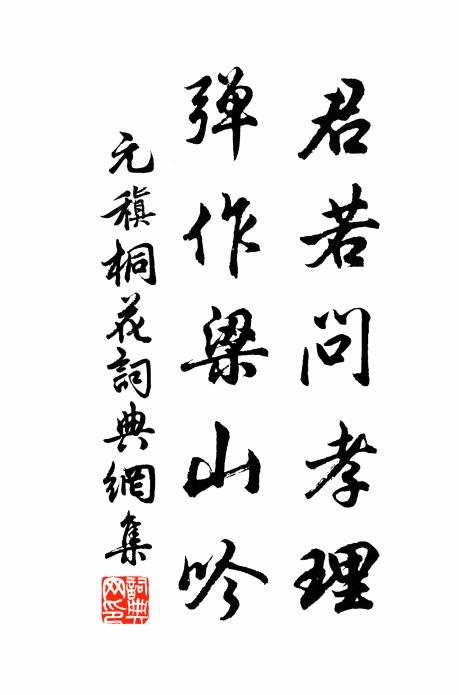 君若问孝理
弹作梁山吟
元稹桐花詞典網集
詞典网印